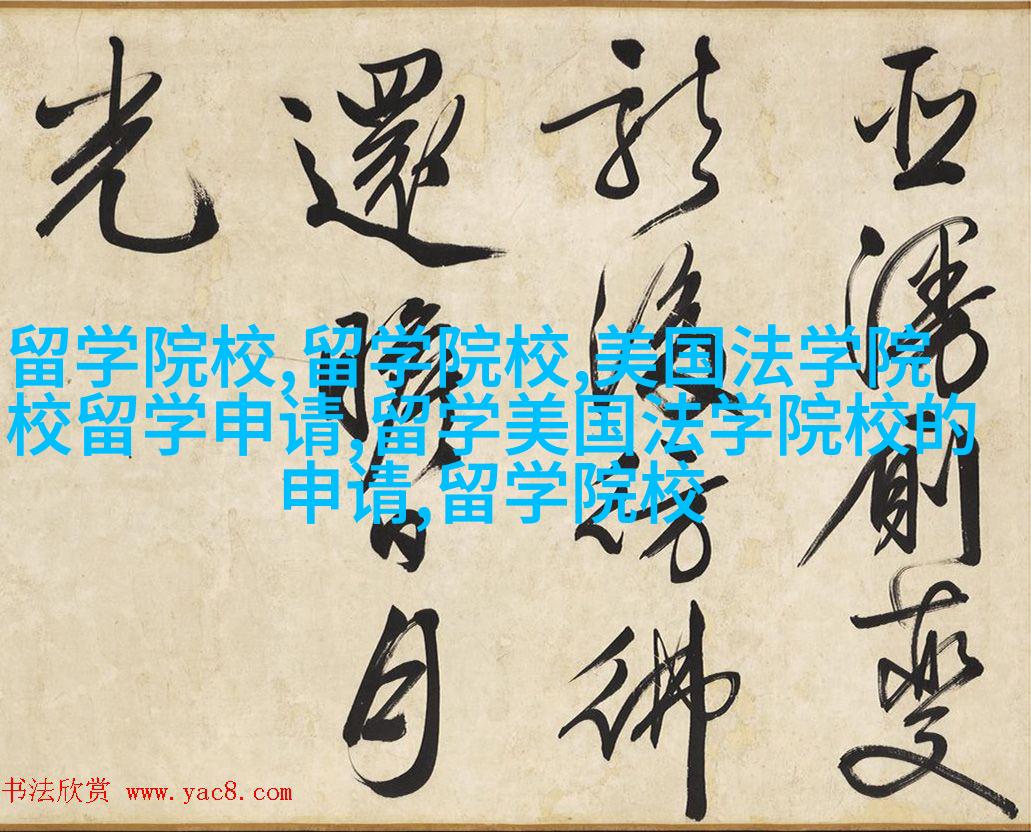 留学院校,留学院校,美国法学院
校留学申请,留学美国法学院校的
申请,留学院校
變
彷彿
還瞻日月
光
书法欣赏 www.yac8.com